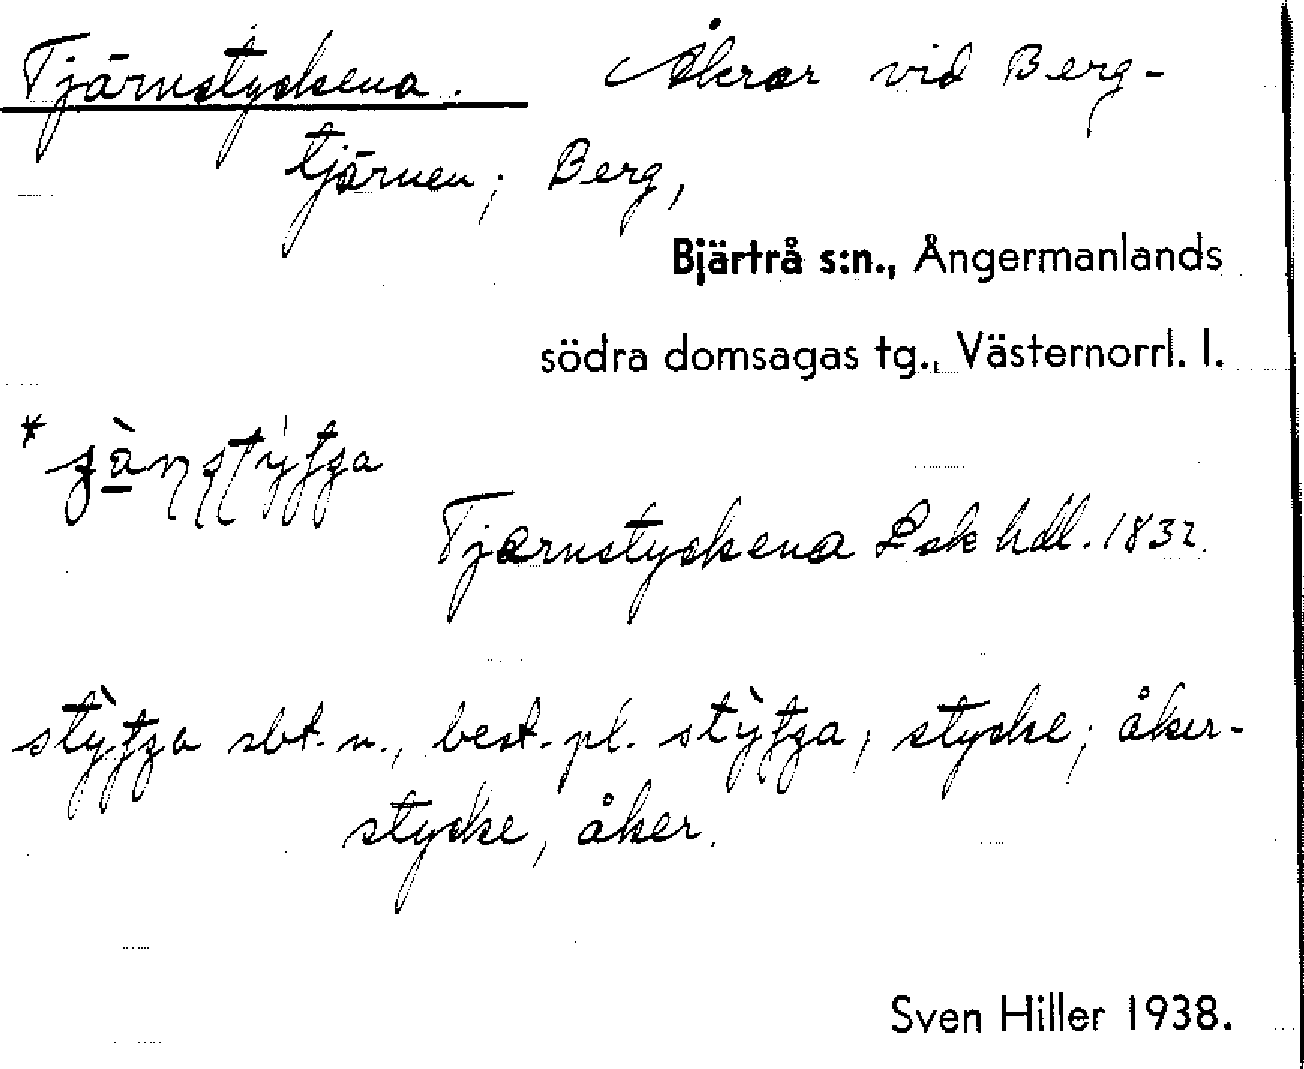 Tjärnstyckena. Åkrar vid Berg-
tjärnen; Berg,
Bjärtrå s:n., Ångermanlands
södra domsagas tg., Västernorrl. l.
Tjärnstyckena Lsk hdl. 1832.
sbt. n., best. pl. stycke; åker-
stycke, åker.
Sven Hiller 1938.